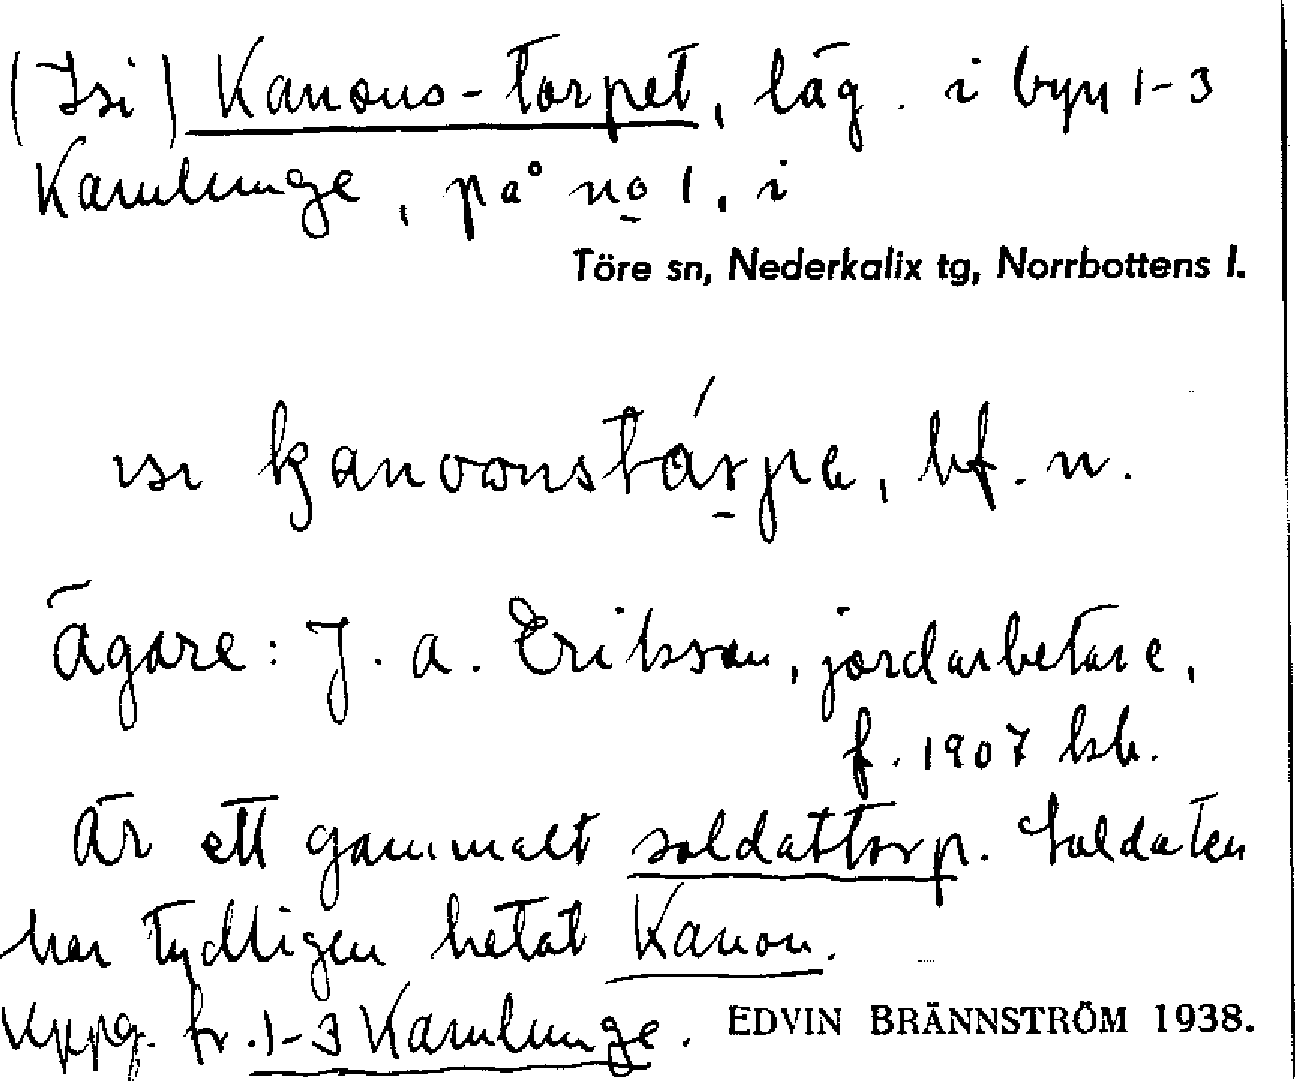 (Isi) Kanons-torpet, läg. i byn 1-3
Kamlunge, på no 1, i
Töre sn, Nederkalix tg, Norrbottens l.
ısı kanoonstárpe, bf. n.
Ägare: J. A. Erikson, jordarbetare,
f. 1907 kb.
Är ett gammalt soldattorp. Soldaten
har tydligen hetat Kanon.
Uppg. fr. 1-3 Kamlunge. EDVIN BRÄNNSTRÖM 1938.